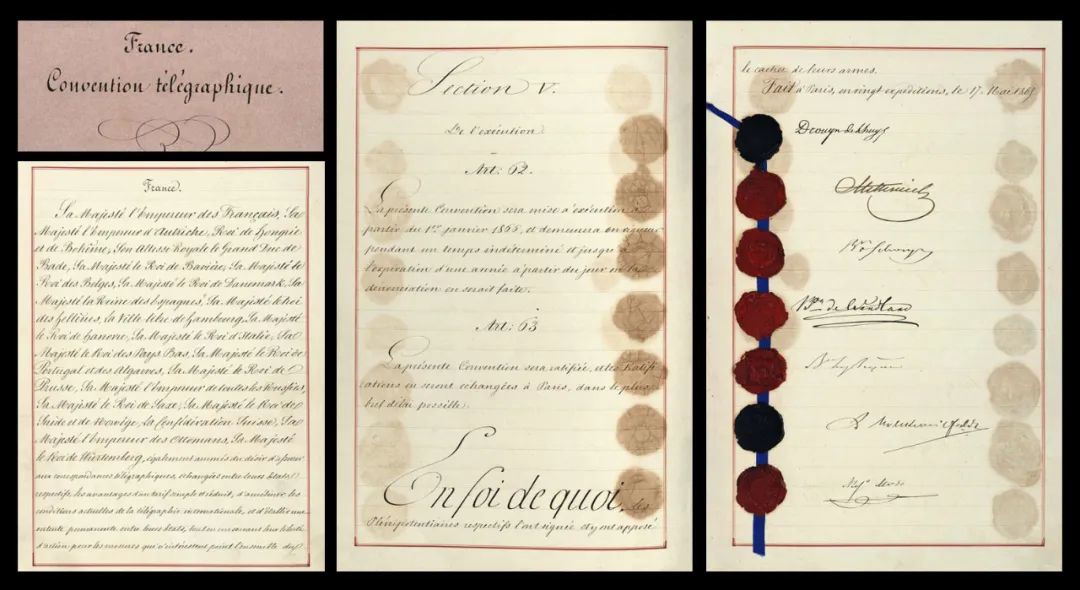 France.
Convention télégraphique.
France.
Sa Majesté l'Empereur des Français, Sa
Majesté l'Empereur d'Autriche, Roi de Hongrie
et de Bohême, Son Altesse Royale le Grand Duc de
Bade, Sa Majesté le Roi de Bavière, Sa Majesté le
Roi des Belges, Sa Majesté le Roi de Danemark, Sa
Majesté la Reine des Espagnes, Sa Majesté le Roi
des Hellènes, la Ville libre de Hambourg, Sa Majesté
le Roi de Hanovre, Sa Majesté le Roi d'Italie, Sa
Majesté le Roi des Pays Bas, Sa Majesté le Roi de
Portugal et des Algarves, Sa Majesté le Roi de
Prusse, Sa Majesté l'Empereur de toutes les Russies,
Sa Majesté le Roi de Saxe, Sa Majesté le Roi de
Suède et de Norvège, la Confédération Suisse, Sa
Majesté l'Empereur des Ottomans, Sa Majesté
le Roi de Wurtemberg, également animés du désir d'assurer
aux correspondances télégraphiques, échangées entre leurs États
respectifs, les avantages d'un tarif simple et réduit, d'améliorer les
conditions actuelles de la télégraphie internationale, et d'établir une
entente permanente entre leurs États, tout en conservant leur liberté
d'action pour les mesures qui n'intéressent point l'ensemble du
Section V.
De l'exécution
Art: 62.
La présente Convention sera mise à exécution à
partir du 1er janvier 1866, et demeurera en vigueur
pendant un temps indéterminé et jusqu'à
l'expiration d'une année à partir du jour où la
dénonciation en serait faite.
Art: 63
La présente Convention sera ratifiée, et les ratifi
cations en seront échangées à Paris, dans le plus
bref délai possible.
En foi de quoi, les
Plénipotentiaires respectifs l'ont signée et y ont apposé
le cachet de leurs armes.
Fait à Paris, en vingt expéditions, le 17 Mai 1865
Drouyn de Lhuys
Metternich